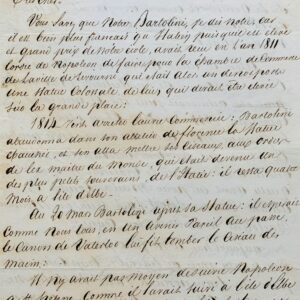 Très cher.
Vous savez que Notre Bartolini, je dis notre, car
il est bien plus français qu'Italien puisqu'il est élève
et Grand prix de notre école, avait reçu en l'an 1811
l'ordre de Napoléon de faire, pour la chambre de Commerce
de la ville de Livourne, qui était alors un de nos ports
une Statue Colossale de lui qui devait être élevée
sur la grande place:
1814 vint arrêter l'œuvre Commencée: Bartolini
abandonna dans son atelier de florence la Statue
ébauchée, et s'en alla mettre ses ciseaux aux ordres
de l'ex maître du Monde, qui était devenu un
des plus petits souverains de l'Italie: il resta quatre
Mois à l'île d'elbe.
Au 1er mars Bartolini reprit sa Statue: il espérait
Comme Nous tous, en un Avenir Pareil au passé
le Canon de Waterloo lui fit tomber le ciseau des
mains:
Il n'y avait pas moyen de suivre Napoléon
à Ste hélène Comme il l'avait suivi à l'île d'elbe